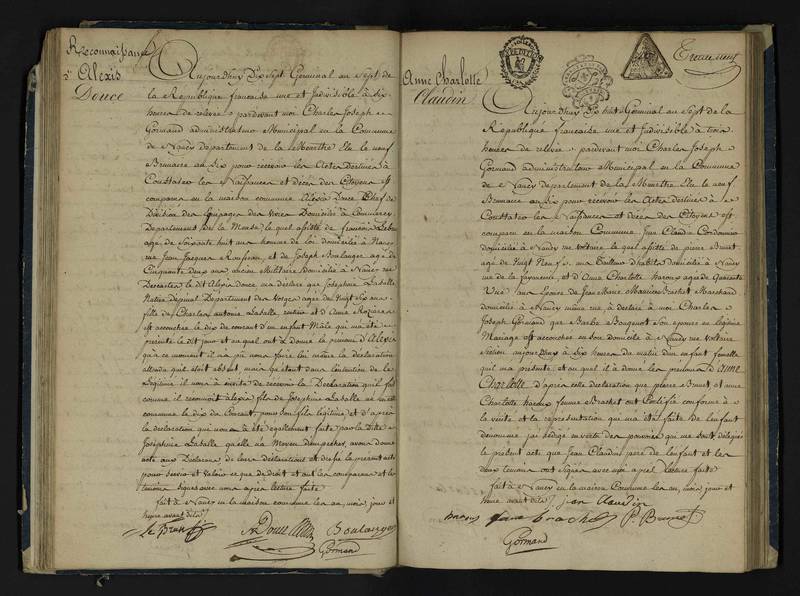 Reconnaissance
d'Alexis
Douce
Aujourd'huy Dix Sept Germinal an Sept de
la Republique française une et Indivisible à Six
heures de relevée pardevant moi Charles Joseph
Gormand administrateur Municipal en la Commune
de Nancy departement de la Meurthe Elu le neuf
Brumaire an Six pour recevoir les Actes destinés à
Constater les Naissances et décès des Citoyens est
comparu en la maison commune Alexis Douce Chef de
Division des Equipages des Vivres Domicilié à Commercy
Departement de la Meuse, lequel assisté de françois Lebrun
agé de Soixante huit ans homme de loi domicilié à Nancy
rue Jean Jacques Rousseau, et de Joseph Boulanger agé de
Cinquante Deux ans ancien Militaire Domicilié à Nancy rue
Descartes le dit Alexis Douce m'a declaré que Josephine Laballe
Native Depinal Departement des Vosges agée de Vingt Six ans
fille de Charles antoine Laballe rentier et D'Anne
est accouchée le dix du courant d'un enfant Mâle qui m'a été
presenté le dit jour et auquel ont a donné le prenom d'Alexis
qu'à ce moment il n'a pu nous faire lui même la declaration
attendu qu'il étoit absent, mais qu'étant dans l'intention de le
légitimer il nous à invité de recevoir la Declaration qu'il fait
comme il reconnoit alexis fils de Josephine Laballe né
commune le dix du Courant, pour son fils légitime, et d'après
la declaration qui nous à été egallement faite par la Ditte
Josephine Laballe qu'elle n'a Moyen d'empecher, avons donné
acte aux Declarans de leurs declarations et dressé le present acte
pour servir et Valoir ce que de droit et ont les comparans et les
temoins signés avec nous après lecture faite
fait à Nancy en la maison commune les an, mois, jour et
heure avant dits
Le Brun
A Douce
Boulanger
Gormand
Anne Charlotte
Claudin
Trente neuf
Aujourd'huy Dix huit Germinal an Sept de la
République française une et Indivisible à trois
heures de relevée pardevant moi Charles Joseph
Gormand administrateur Municipal en la Commune
de Nancy Departement de la Meurthe Elu le neuf
Brumaire an Six pour recevoir les Actes destinés à
Constater les Naissances et décès des Citoyens est
comparu en la maison Commune Jean Claudin Cordonnier
domicilié à Nancy rue Voltaire lequel assisté de pierre Brunet
agé de Vingt Neuf ans Tailleur d'habits domicilié à Nancy
rue de la fayencerie et d'Anne Charlotte haroux agée de Quarante
Un ans Epouse de Jean Marie Maurice Brachet Marchand
domicilié à Nancy même rue, à declaré à moi Charles
Joseph Gormand que Barbe Bougenot son epouse en legitime
Mariage est accouchée en son domicile à Nancy rue Voltaire
section aujourd'huy à Six heures du matin d'un enfant femelle
qu'il m'a presenté, et auquel il à donné les prenoms d'Anne
Charlotte, d'après cette declaration que pierre Brunet et anne
Charlotte haroux femme Brachet ont Certifié conforme à
la vérité et la representation qui m'a été faite de l'enfant
denommé j'ai rédigé en vertu des pouvoirs qui me sont délégués
le present acte que Jean Claudin pere de l'enfant et les
deux temoins ont signés avec moi après lecture faite
fait à Nancy en la maison Commune les an, mois, jour et
heure avant dits
jean Claudin
haroux fame brachet
P. Brunet
Gormand